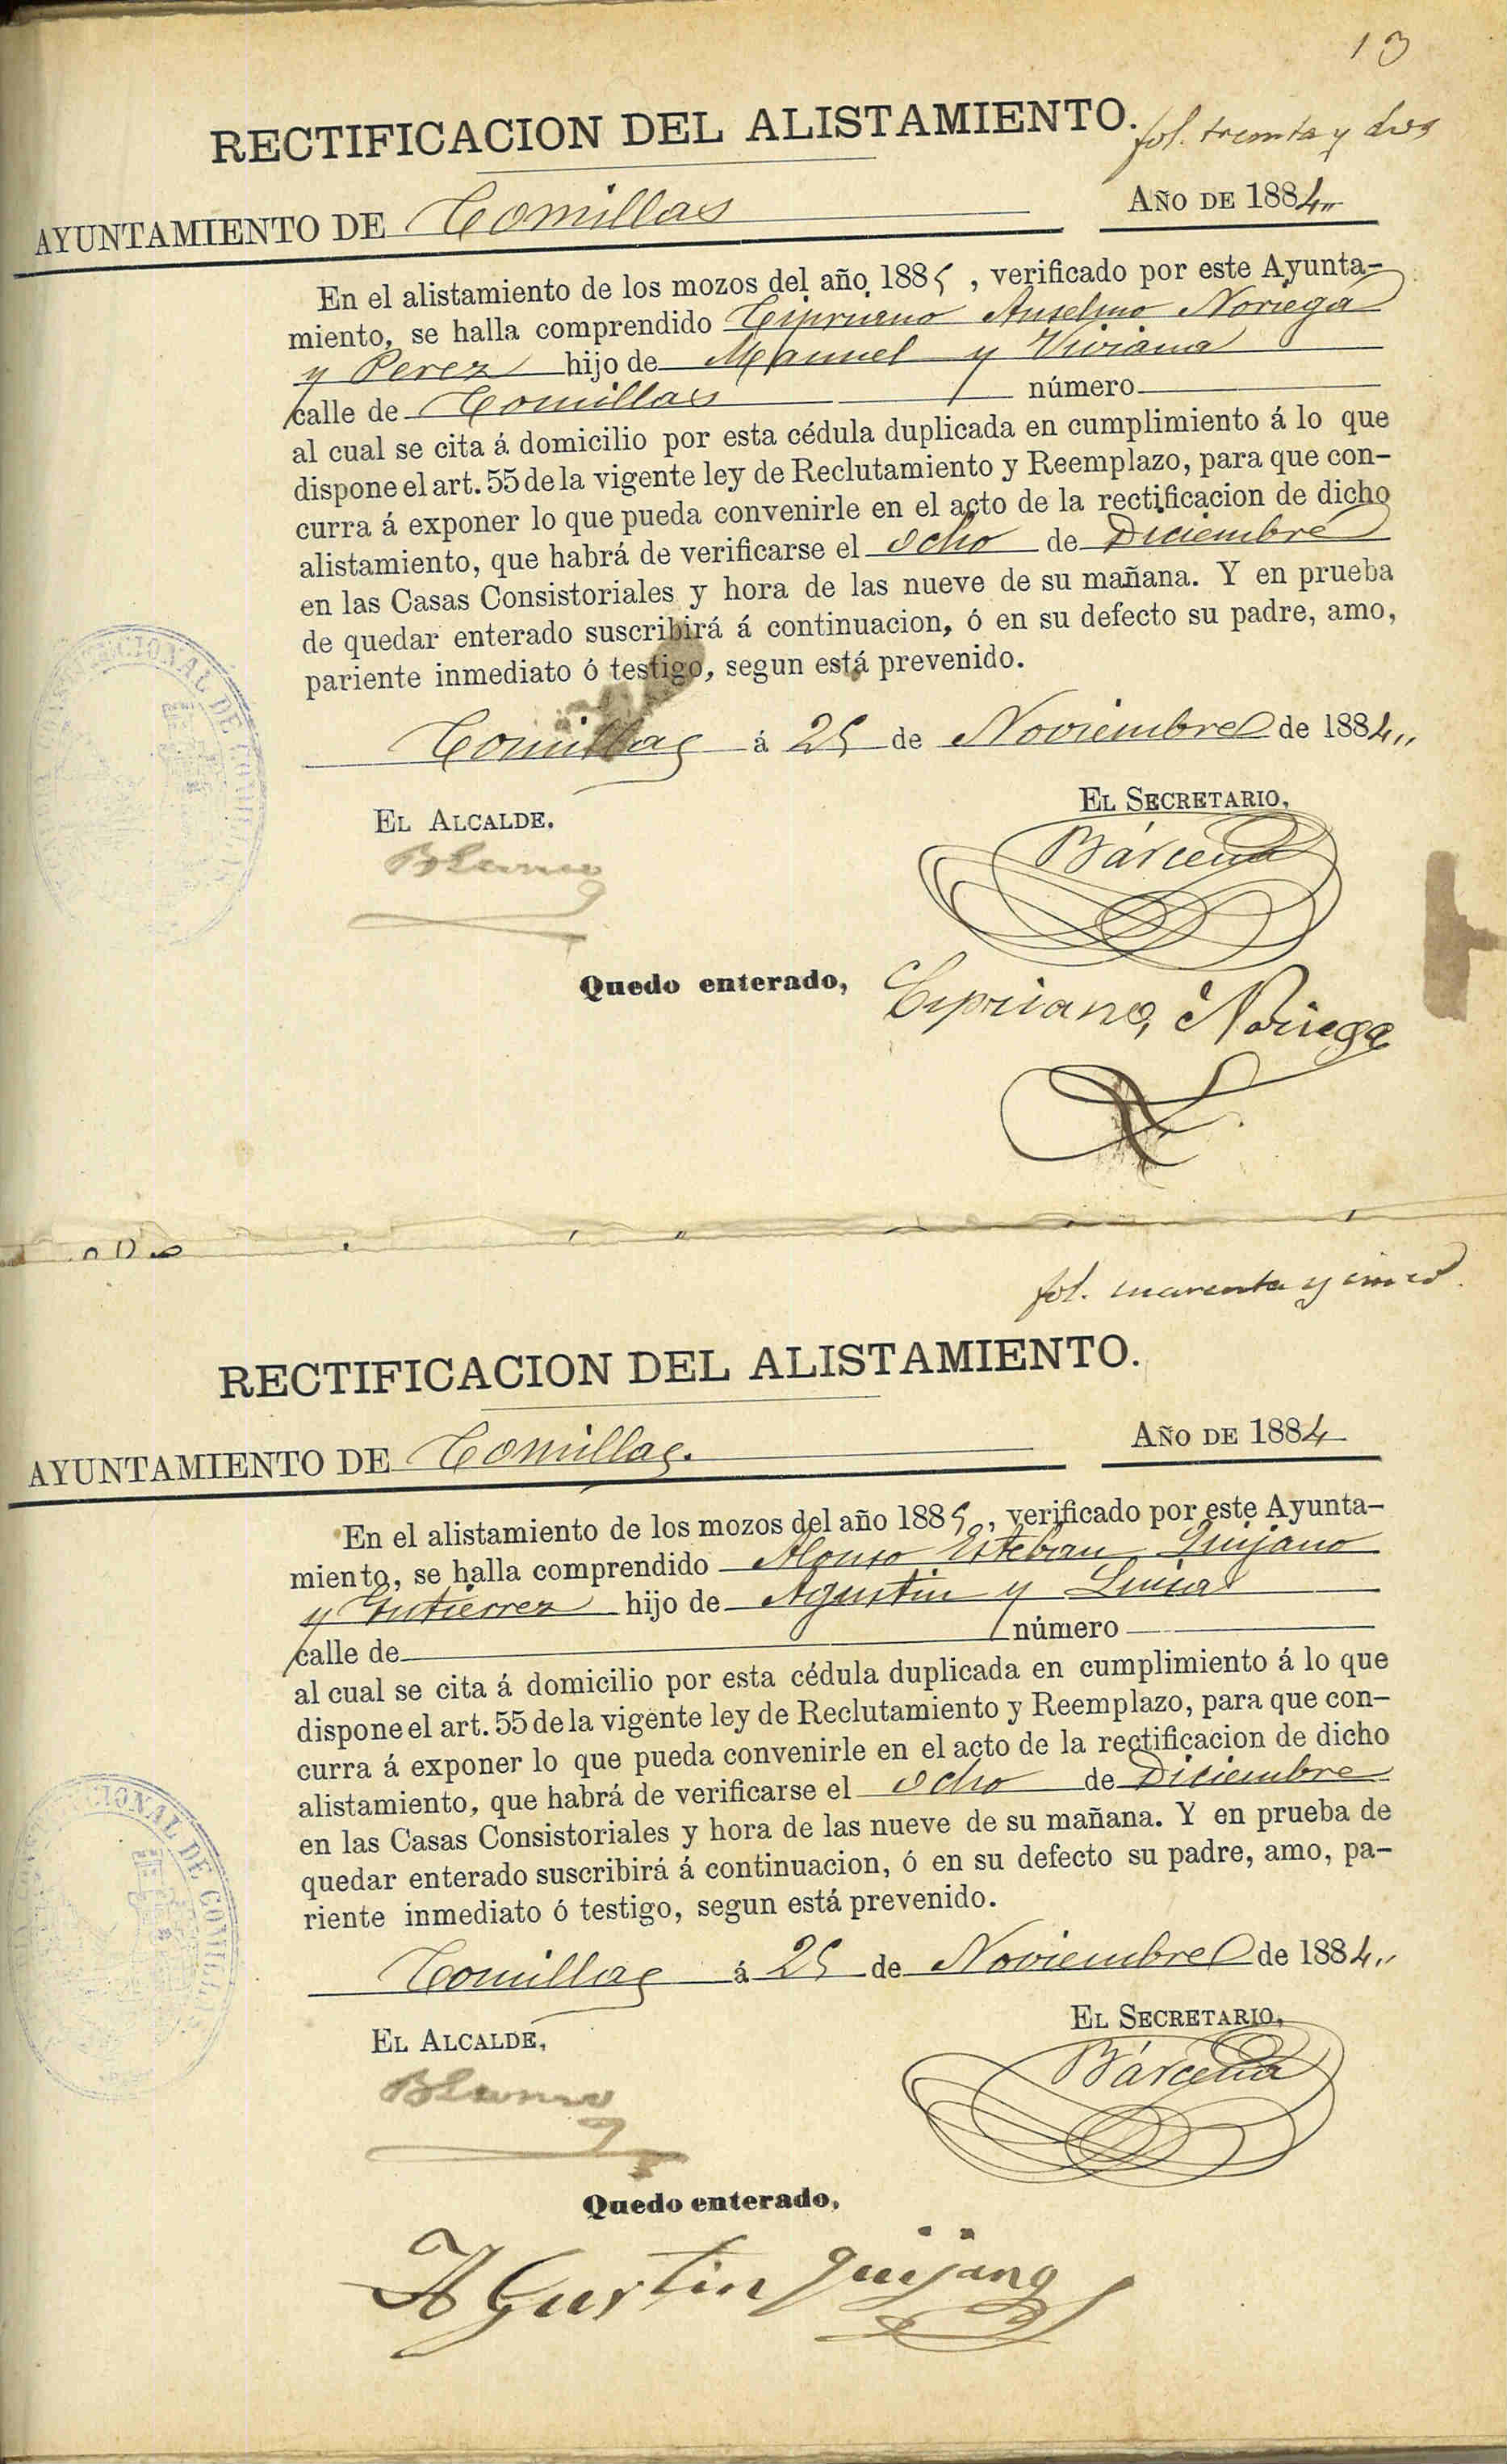 13
RECTIFICACION DEL ALISTAMIENTO.
fol. treinta y dos
AYUNTAMIENTO DE Comillas
AÑO DE 1884
En el alistamiento de los mozos del año 1885, verificado por este Ayunta-
miento, se halla comprendido Cipriano Anselmo Noriega
y Perez hijo de Manuel y Viviana
calle de Comillas número
al cual se cita á domicilio por esta cédula duplicada en cumplimiento á lo que
dispone el art. 55 de la vigente ley de Reclutamiento y Reemplazo, para que con-
curra á exponer lo que pueda convenirle en el acto de la rectificacion de dicho
alistamiento, que habrá de verificarse el ocho de Diciembre
en las Casas Consistoriales y hora de las nueve de su mañana. Y en prueba
de quedar enterado suscribirá á continuacion, ó en su defecto su padre, amo,
pariente inmediato ó testigo, segun está prevenido.
CONSTITUCIONAL DE COMILLAS
Comillas á 25 de Noviembre de 1884
EL ALCALDE.
EL SECRETARIO,
Bárcena
Quedo enterado,
Cipriano, Noriega
fol. cuarenta y cinco.
RECTIFICACION DEL ALISTAMIENTO.
AYUNTAMIENTO DE Comillas.
AÑO DE 1884
En el alistamiento de los mozos del año 1885, verificado por este Ayunta-
miento, se halla comprendido Alonso Esteban Quijano
y Gutierrez hijo de Agustin y Luisa
calle de número
al cual se cita á domicilio por esta cédula duplicada en cumplimiento á lo que
dispone el art. 55 de la vigente ley de Reclutamiento y Reemplazo, para que con-
curra á exponer lo que pueda convenirle en el acto de la rectificacion de dicho
alistamiento, que habrá de verificarse el ocho de Diciembre
en las Casas Consistoriales y hora de las nueve de su mañana. Y en prueba de
quedar enterado suscribirá á continuacion, ó en su defecto su padre, amo, pa-
riente inmediato ó testigo, segun está prevenido.
CONSTITUCIONAL DE COMILLAS
Comillas á 25 de Noviembre de 1884
EL ALCALDE,
EL SECRETARIO,
Bárcena
Quedo enterado,
AGustin quijano